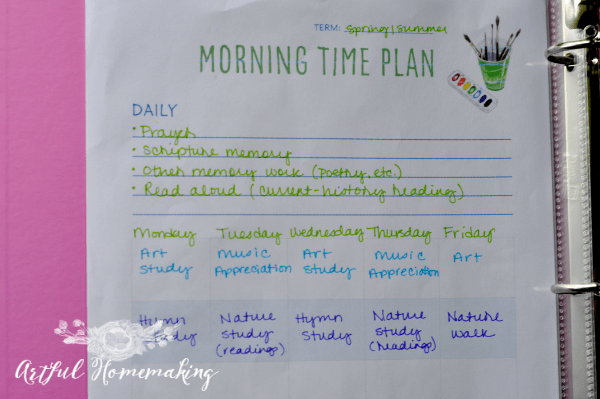 TERM: Spring/Summer
MORNING TIME PLAN
DAILY
• Prayer
• Scripture memory
• Other memory work (poetry, etc.)
• Read aloud (current-history readings)
Monday Tuesday Wednesday Thursday Friday
Art Music Art Music Art
Study Appreciation Study Appreciation
Hymn Nature Hymn Nature Nature
Study Study Study Study Walk
(readings) (readings)
Artful Homemaking